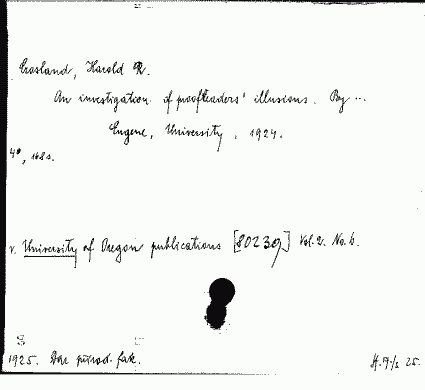 Crosland, Harold R.
An investigation of proofreaders' illusions. By ...
Eugene, University, 1924.
4°, 168 s.
v. University of Oregon publications [80239] Vol. 2. No. 6.
1925. period. fak.
25.